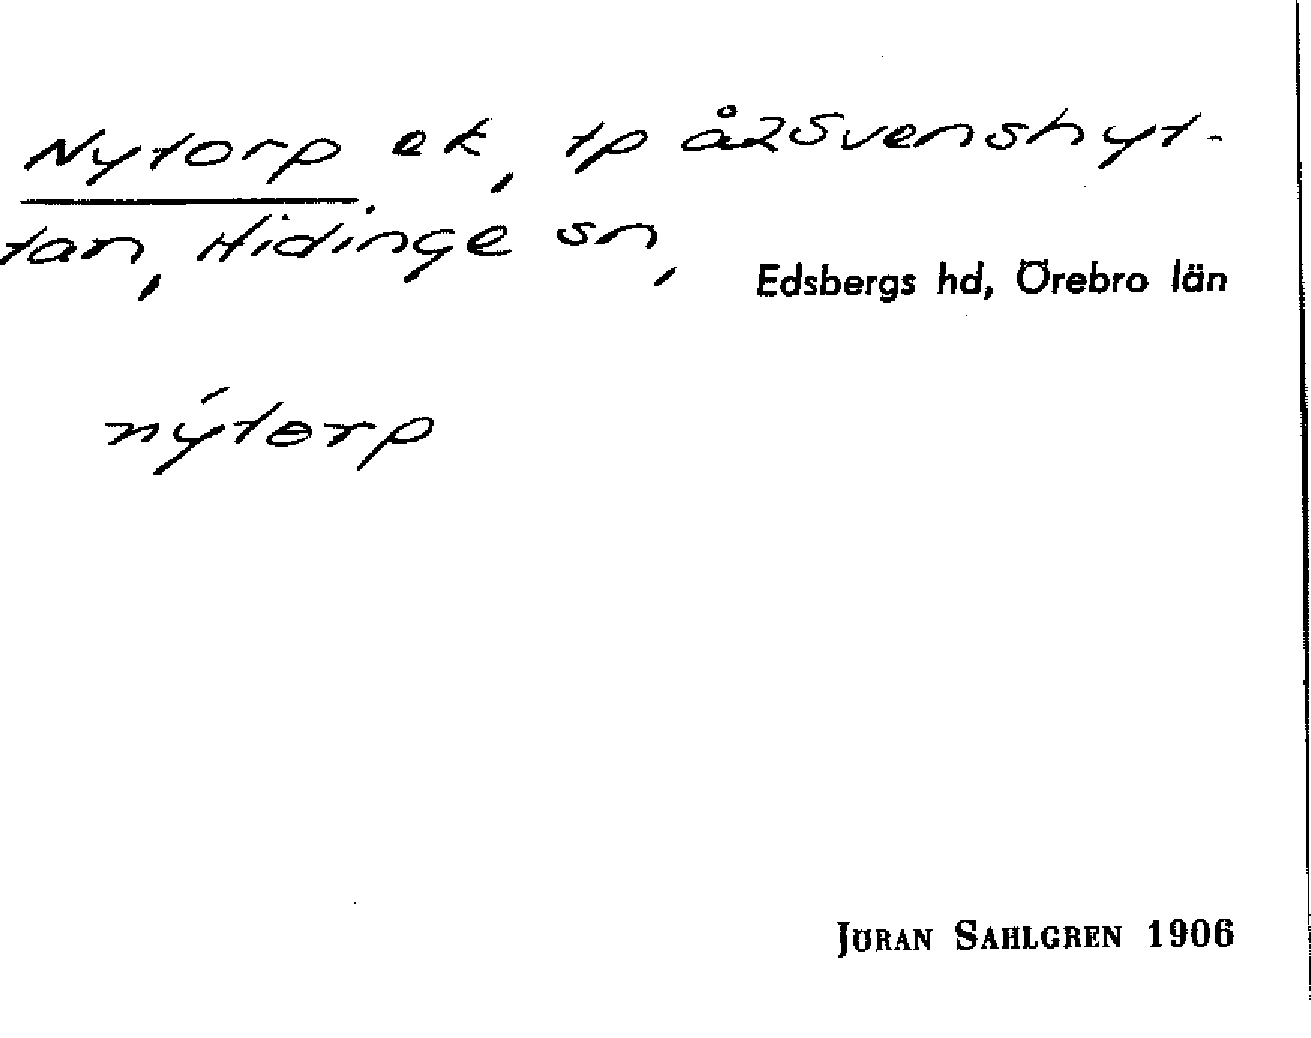 Nytorp ek, tp å2Svenshyt-
tan, Hidinge sn,
Edsbergs hd, Örebro län
nýtorp
JÖRAN SAHLGREN 1906